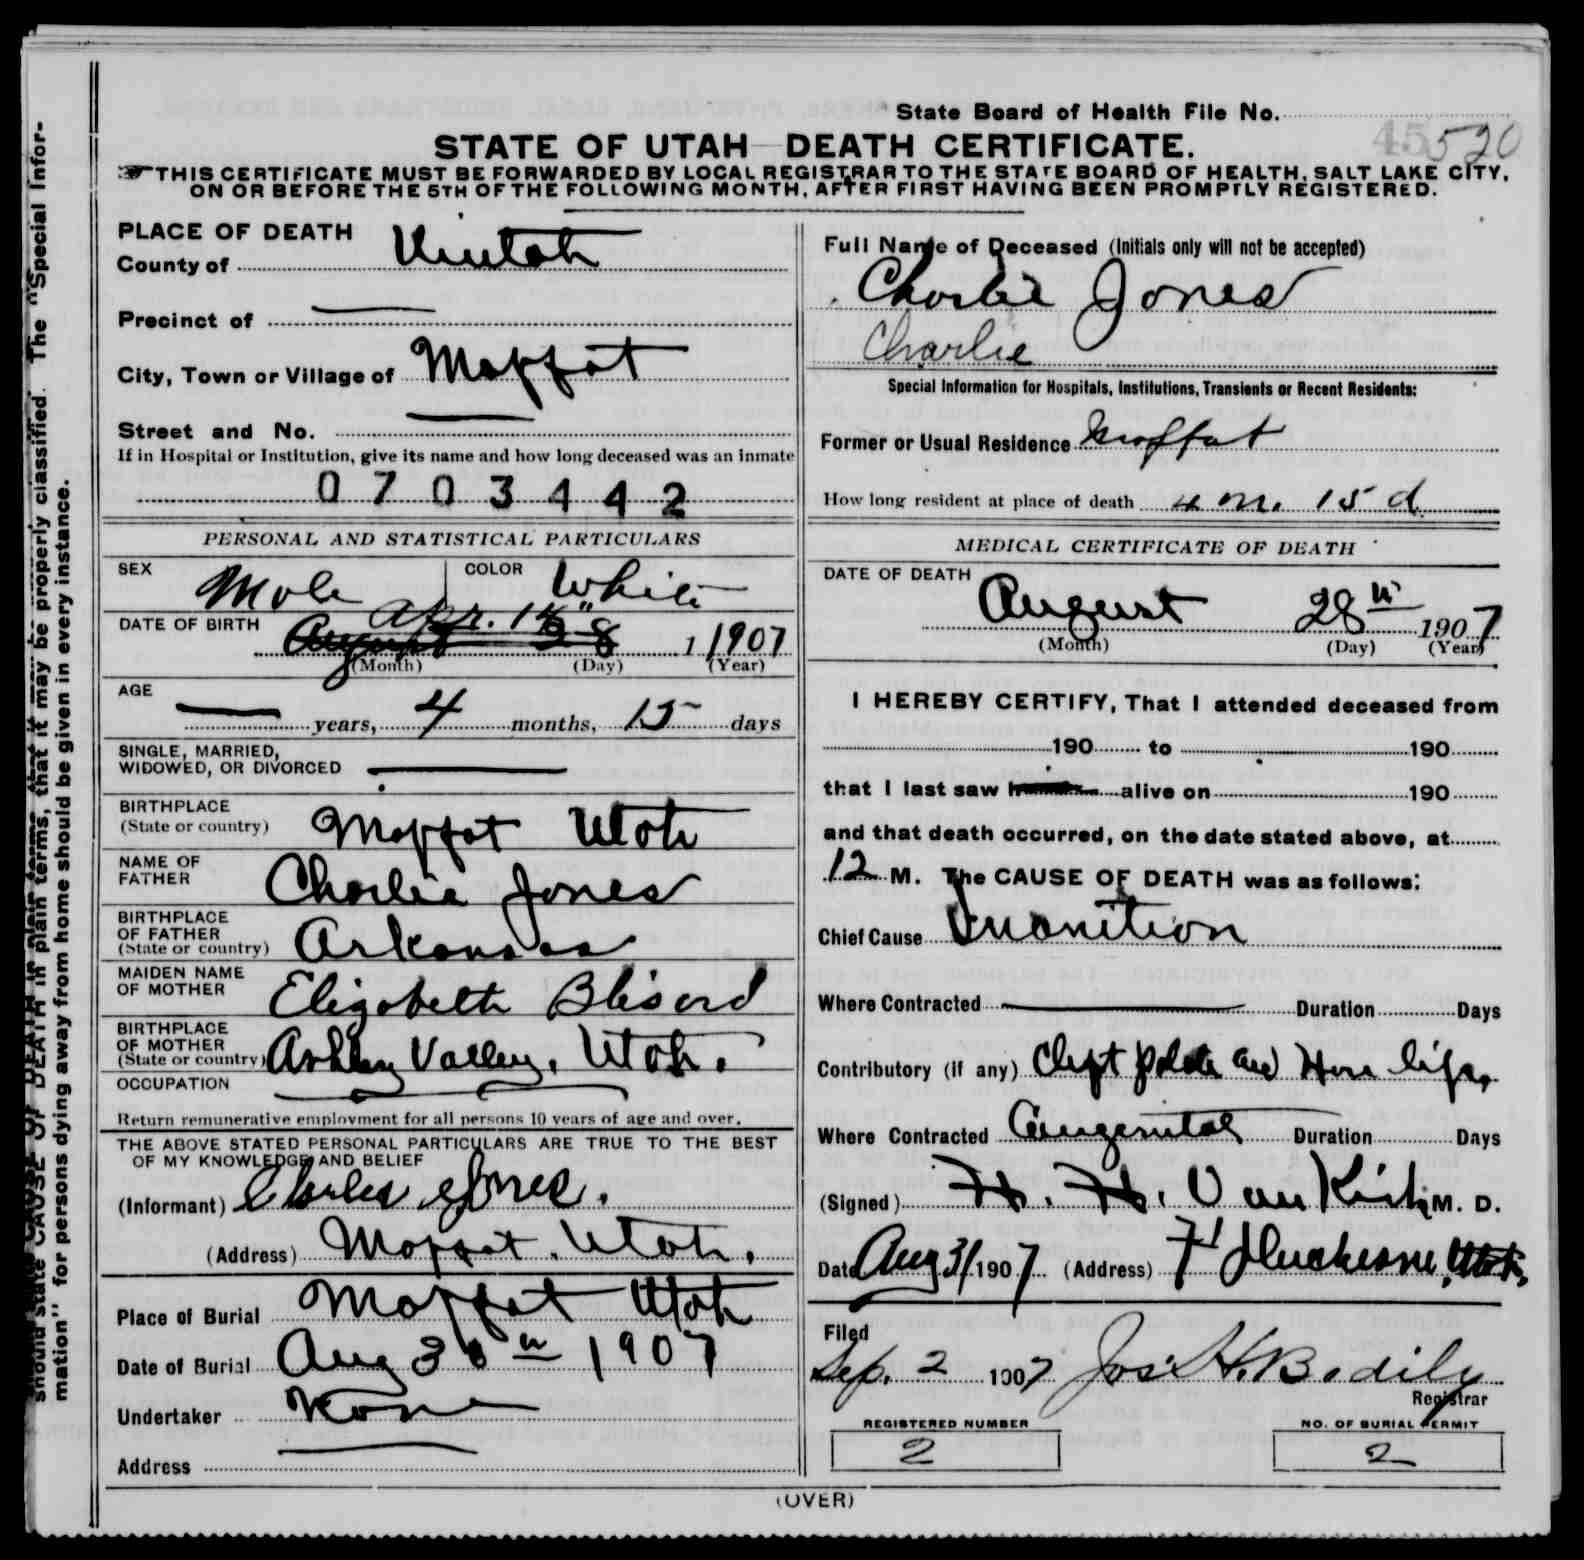 State Board of Health File No. 45520
STATE OF UTAH—DEATH CERTIFICATE.
THIS CERTIFICATE MUST BE FORWARDED BY LOCAL REGISTRAR TO THE STATE BOARD OF HEALTH, SALT LAKE CITY,
ON OR BEFORE THE 5TH OF THE FOLLOWING MONTH, AFTER FIRST HAVING BEEN PROMPTLY REGISTERED.
PLACE OF DEATH
County of Uintah
Precinct of —
City, Town or Village of Moffat
Street and No. —
If in Hospital or Institution, give its name and how long deceased was an inmate
0703442
PERSONAL AND STATISTICAL PARTICULARS
SEX Male COLOR White
DATE OF BIRTH Apr. 14"
August 28 1 1907
(Month) (Day) (Year)
AGE
— years, 4 months, 15 days
SINGLE, MARRIED,
WIDOWED, OR DIVORCED —
BIRTHPLACE
(State or country) Moffat Utah
NAME OF
FATHER Charlie Jones
BIRTHPLACE
OF FATHER
(State or country) Arkansas
MAIDEN NAME
OF MOTHER Elizabeth
BIRTHPLACE
OF MOTHER
(State or country) Ashley Valley, Utah.
OCCUPATION —
Return remunerative employment for all persons 10 years of age and over.
THE ABOVE STATED PERSONAL PARTICULARS ARE TRUE TO THE BEST
OF MY KNOWLEDGE AND BELIEF
(Informant) Charles Jones.
(Address) Moffat, Utah.
Place of Burial Moffat Utah
Date of Burial Aug 30th 1907
Undertaker None
Address —
Full Name of Deceased (Initials only will not be accepted)
Charlie Jones
Charlie
Special Information for Hospitals, Institutions, Transients or Recent Residents:
Former or Usual Residence Moffat
How long resident at place of death 4 m. 15 d
MEDICAL CERTIFICATE OF DEATH
DATE OF DEATH
August 28th 1907
(Month) (Day) (Year)
I HEREBY CERTIFY, That I attended deceased from
190 to 190
that I last saw h alive on 190
and that death occurred, on the date stated above, at
12 M. The CAUSE OF DEATH was as follows:
Chief Cause Inanition
Where Contracted — Duration Days
Contributory (if any) Cleft palate and Hare lip,
Where Contracted Congenital Duration Days
(Signed) H. H. Van Kirk, M. D.
Date Aug 31 1907 (Address) Ft Duchesne, Utah.
Filed
Sep. 2 1907 Jos. H. Bodily
Registrar
REGISTERED NUMBER
2
NO. OF BURIAL PERMIT
2
(OVER)
should state CAUSE OF DEATH in plain terms, that it may be properly classified. The "Special Infor-
mation" for persons dying away from home should be given in every instance.